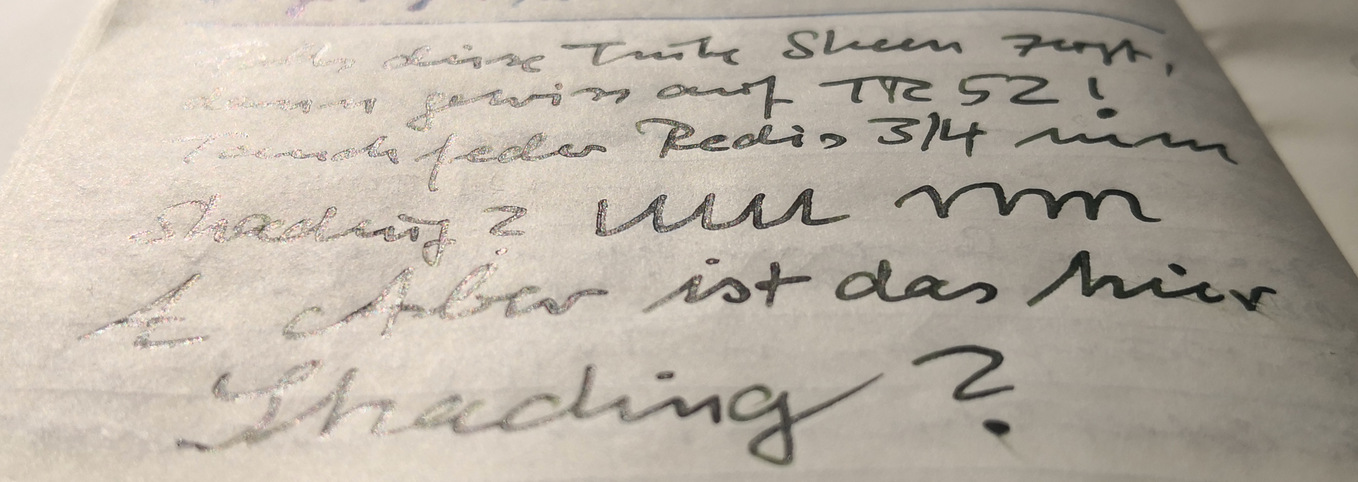 diese Tinte Sheen zeigt,
dann gewiss auf TR 52!
Tauchfeder Redis 3/4 mm
Shading?
Aber ist das hier
Shading?